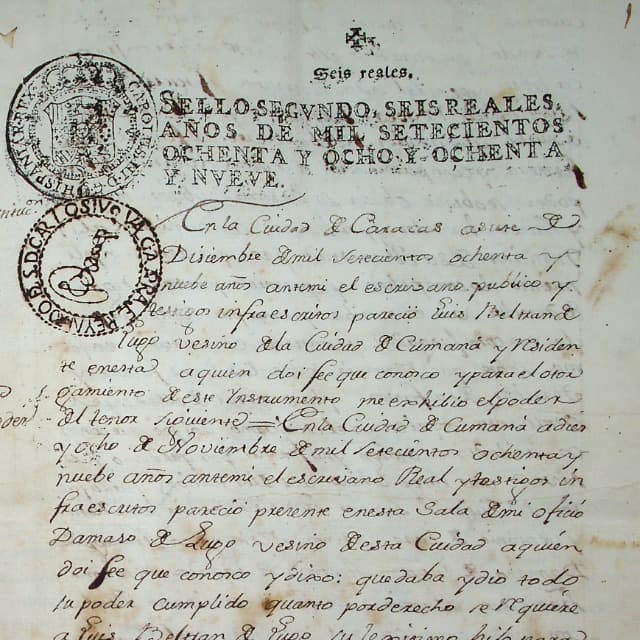 Seis reales.
SELLO SEGVNDO, SEIS REALES,
AÑOS DE MIL SETECIENTOS
OCHENTA Y OCHO Y OCHENTA
Y NVEVE.
En la Ciudad de Caracas a siete de
Disiembre de mil setecientos ochenta y
nuebe años antemi el escrivano publico y
testigos infraescritos parecio Luis Beltran de
Lugo vesino de la Ciudad de Cumaná y Residen
te enesta aquien doi fee que conosco y para el otor
gamiento de este Instrumento me exhibio el poder
del tenor siguiente = En la Ciudad de Cumaná a dies
y ocho de Noviembre de mil setecientos ochenta y
nuebe años antemi el escrivano Real y testigos in
fraescritos parecio presente enesta Sala de mi oficio
Damaso de Lugo vesino de esta Ciudad aquien
doi fee que conosco y dixo: que daba y dio todo
su poder cumplido quanto por derecho se Requiere
a Luis Beltran de Lugo su lexitimo hijo para